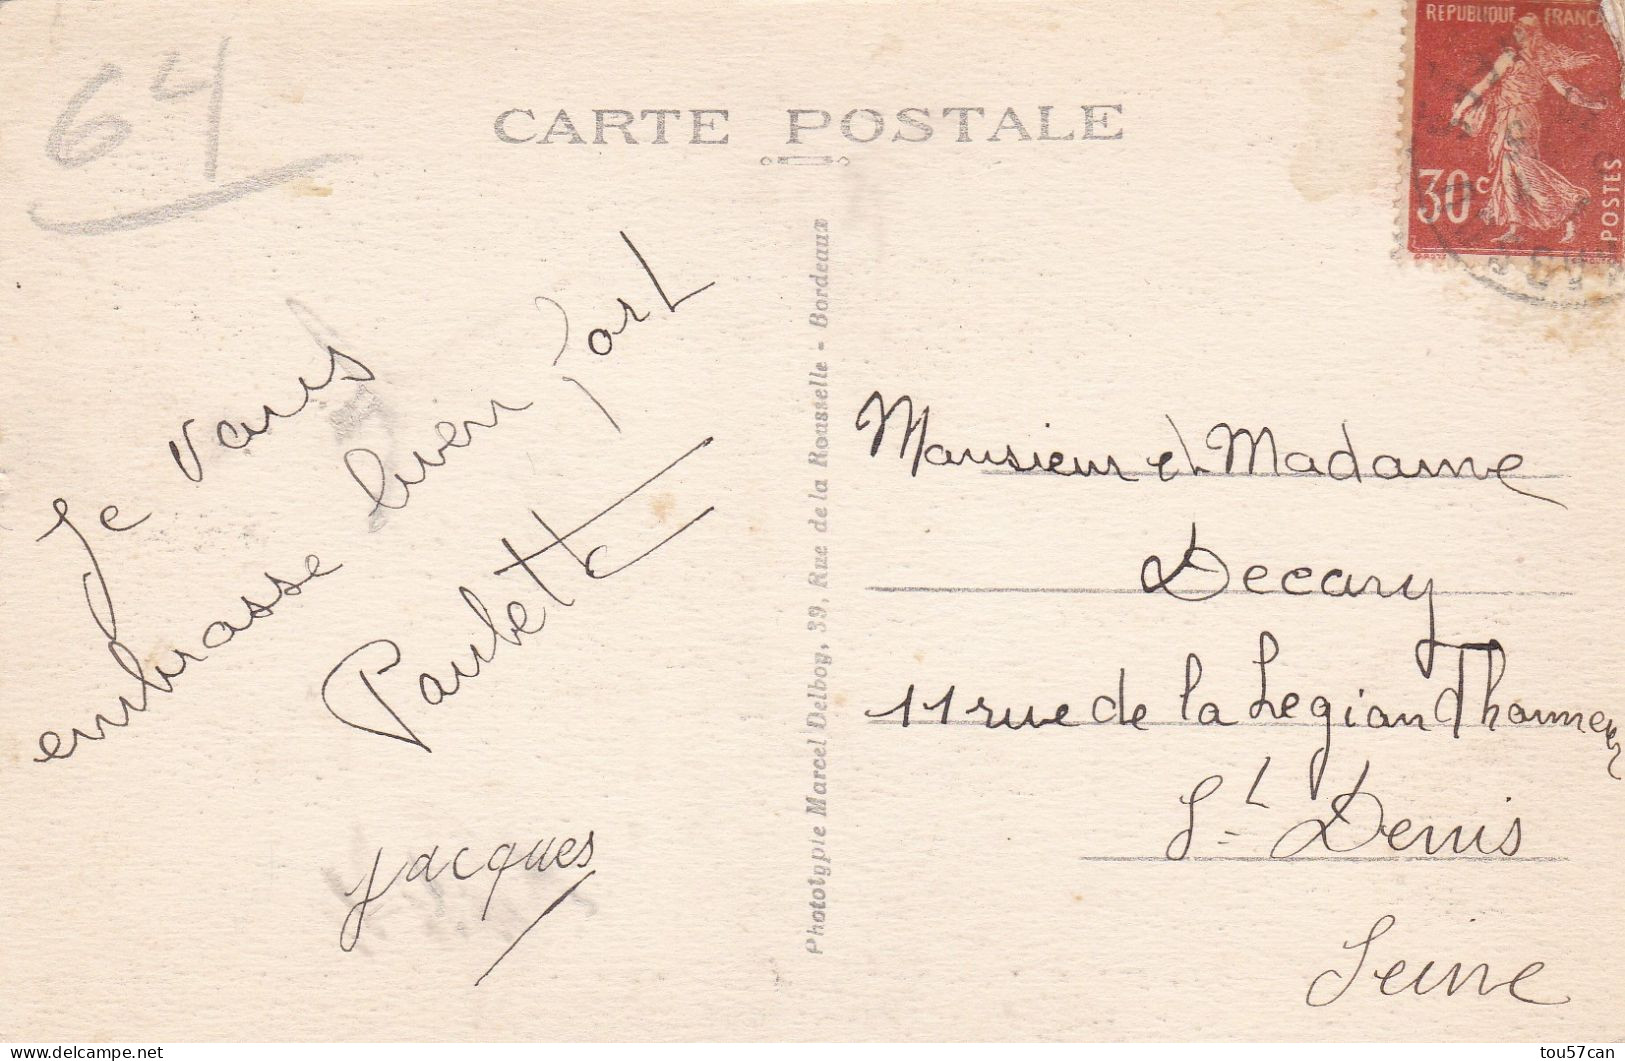 64
CARTE POSTALE
REPUBLIQUE FRANÇA
30c
POSTES
Je vous
embrasse bien fort
Paulette
Jacques
Phototypie Marcel Delboy, 39, Rue de la Rousselle - Bordeaux
Monsieur et Madame
Decary
11 rue de la Legion d'honneur
St Denis
Seine
tou57can